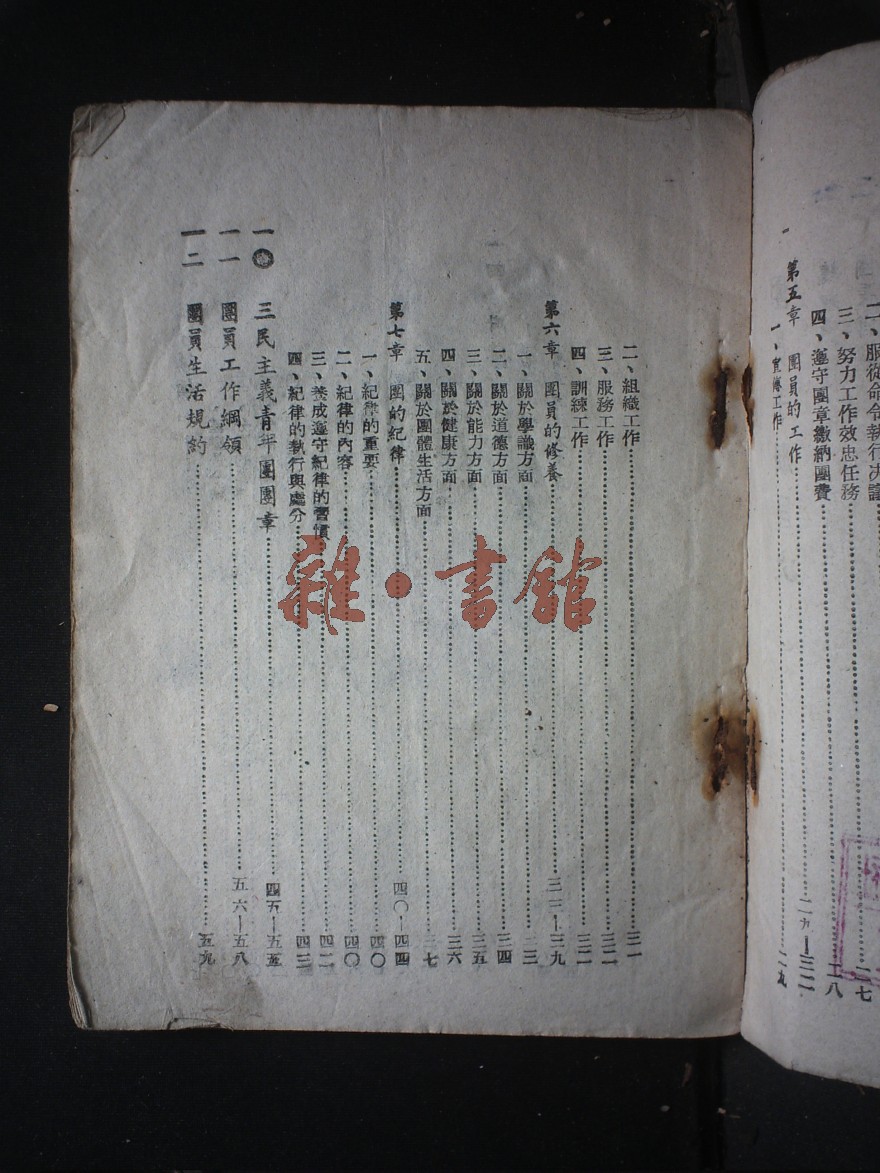 二、服從命令執行决議
三、努力工作效忠任務……二七
四、遵守團章繳納團費……二八
第五章 團員的工作……二九—三二
一、宣傳工作……二九
二、組織工作……三一
三、服務工作……三二
四、訓練工作……三二
第六章 團員的修養……三二—三九
一、關於學識方面……三三
二、關於道德方面……三四
三、關於能力方面……三五
四、關於健康方面……三六
五、關於團體生活方面……三七
第七章 團的紀律……四〇—四四
一、紀律的重要……四〇
二、紀律的內容……四〇
三、養成遵守紀律的習慣……四二
四、紀律的執行與處分……四三
一〇 三民主義青年團團章……四五—五五
一一 團員工作綱領……五六—五八
一二 團員生活規約……五九
雜·書館